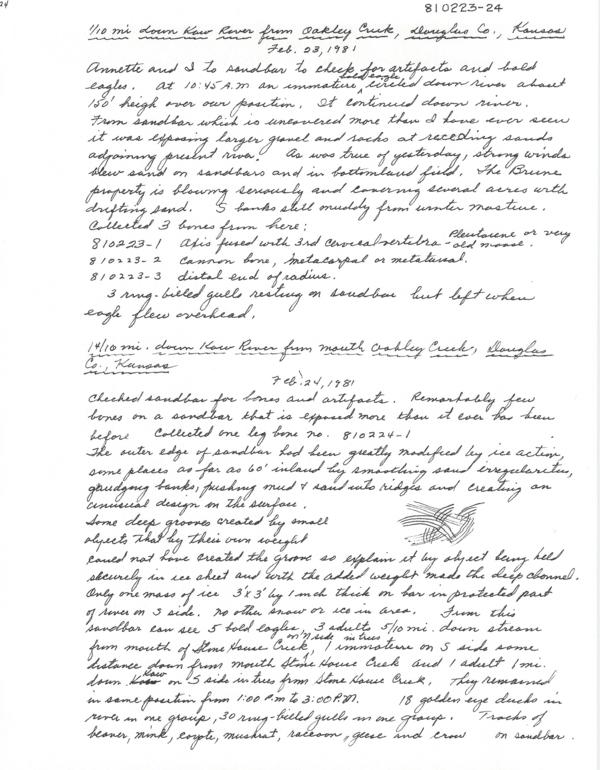 24
810223-24
1/10 mi down Kaw River from Oakley Creek, Douglas Co., Kansas
Feb. 23, 1981
Annette and I to sandbar to check for artifacts and bald
eagles. At 10:45 A.M. an immature bald eagle circled down river about
150' heigh over our position. It continued down river.
From sandbar which is uncovered more than I have ever seen
it was exposing larger gravel and rocks at receeding sands
adjoining present river. As was true of yesterday, strong winds
blew sand on sandbars and in bottomland field. The Brune
property is blowing seriously and covering several acres with
drifting sand. S banks still muddy from winter moisture.
Collected 3 bones from here:
810223-1 Axis fused with 3rd cervical vertebra - Pleistocene or very old moose.
810223-2 Cannon bone, metacarpal or metatarsal.
810223-3 distal end of radius.
3 ring-billed gulls resting on sandbar but left when
eagle flew overhead.
14/10 mi. down Kaw River from mouth Oakley Creek, Douglas
Co., Kansas
Feb. 24, 1981
Checked sandbar for bones and artifacts. Remarkably few
bones on a sandbar that is exposed more than it ever has been
before Collected one leg bone no. 810224-1
The outer edge of sandbar had been greatly modified by ice action,
some places as far as 60' inland by smoothing sand irregularities,
goudging banks, pushing mud & sand into ridges and creating an
unusual design in the surface.
Some deep grooves created by small
objects that by their own weight
could not have created the groove so explain it by object being held
securely in ice sheet and with the added weight made the deep channel.
Only one mass of ice 3'x3' by 1 inch thick on bar in protected part
of river on S side. no other snow or ice in area. From this
sandbar can see 5 bald eagles, 3 adults 5/10 mi. down stream
from mouth of Stone House Creek, on N side in trees 1 immature on S side some
distance down from mouth Stone House Creek and 1 adult 1 mi.
down Kaw on S side in trees from Stone House Creek. They remained
in same position from 1:00 P.M to 3:00 P.M. 18 golden eye ducks in
river in one group, 30 ring-billed gulls in one group. Tracks of
beaver, mink, coyote, muskrat, raccoon, geese and crow on sandbar.